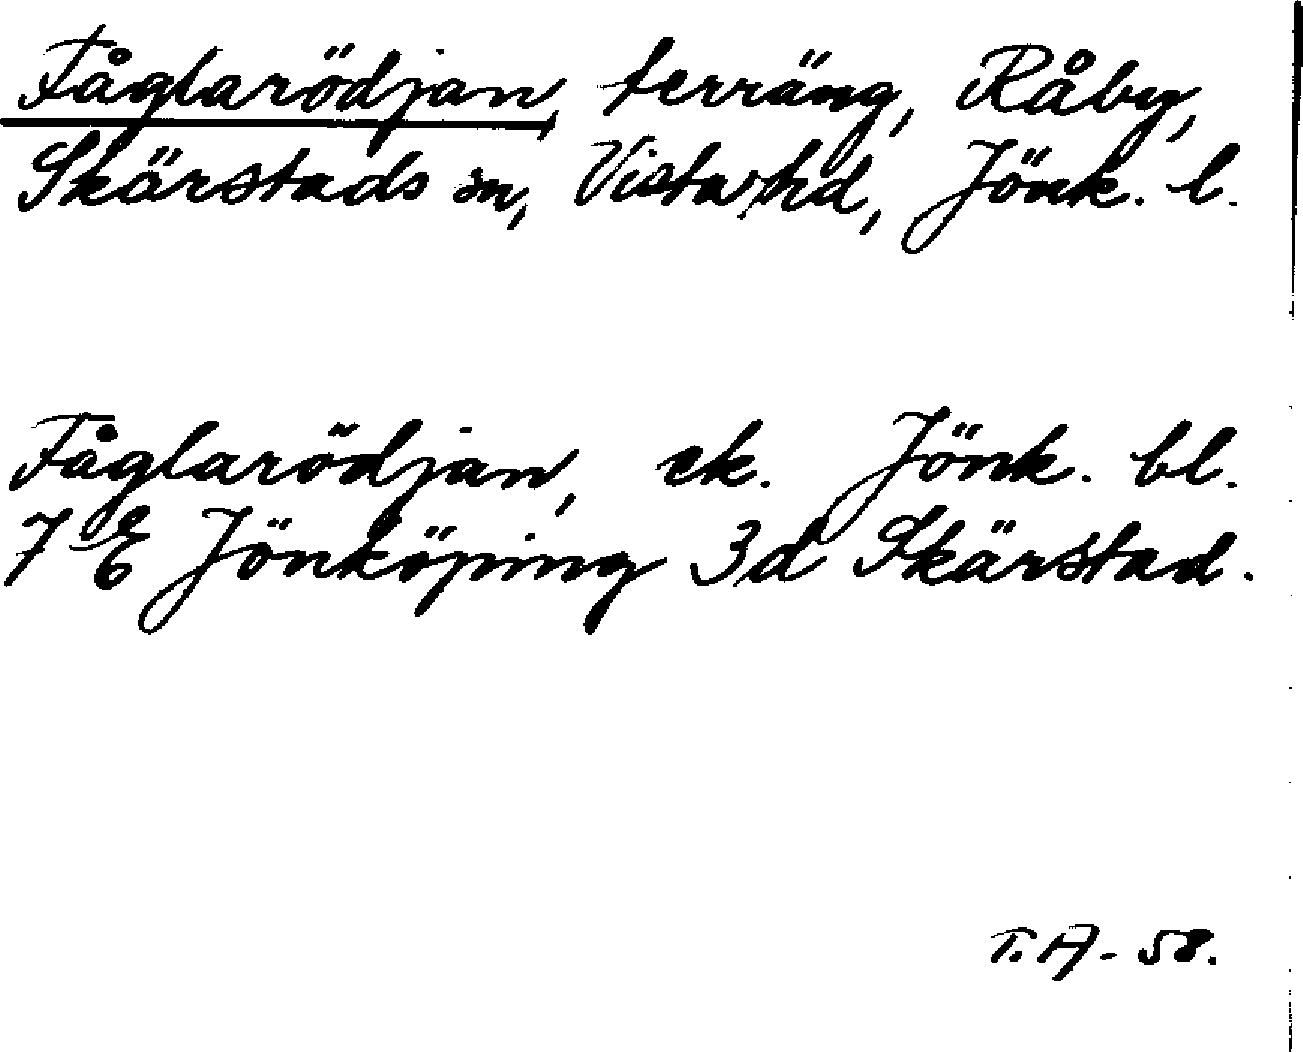 Fåglarödjan, terräng, Råby,
Skärstads sn, Vista hd, Jönk. l.
Fåglarödjan, ek. Jönk. bl.
7 E Jönköping 3d Skärstad.
T.A-58.